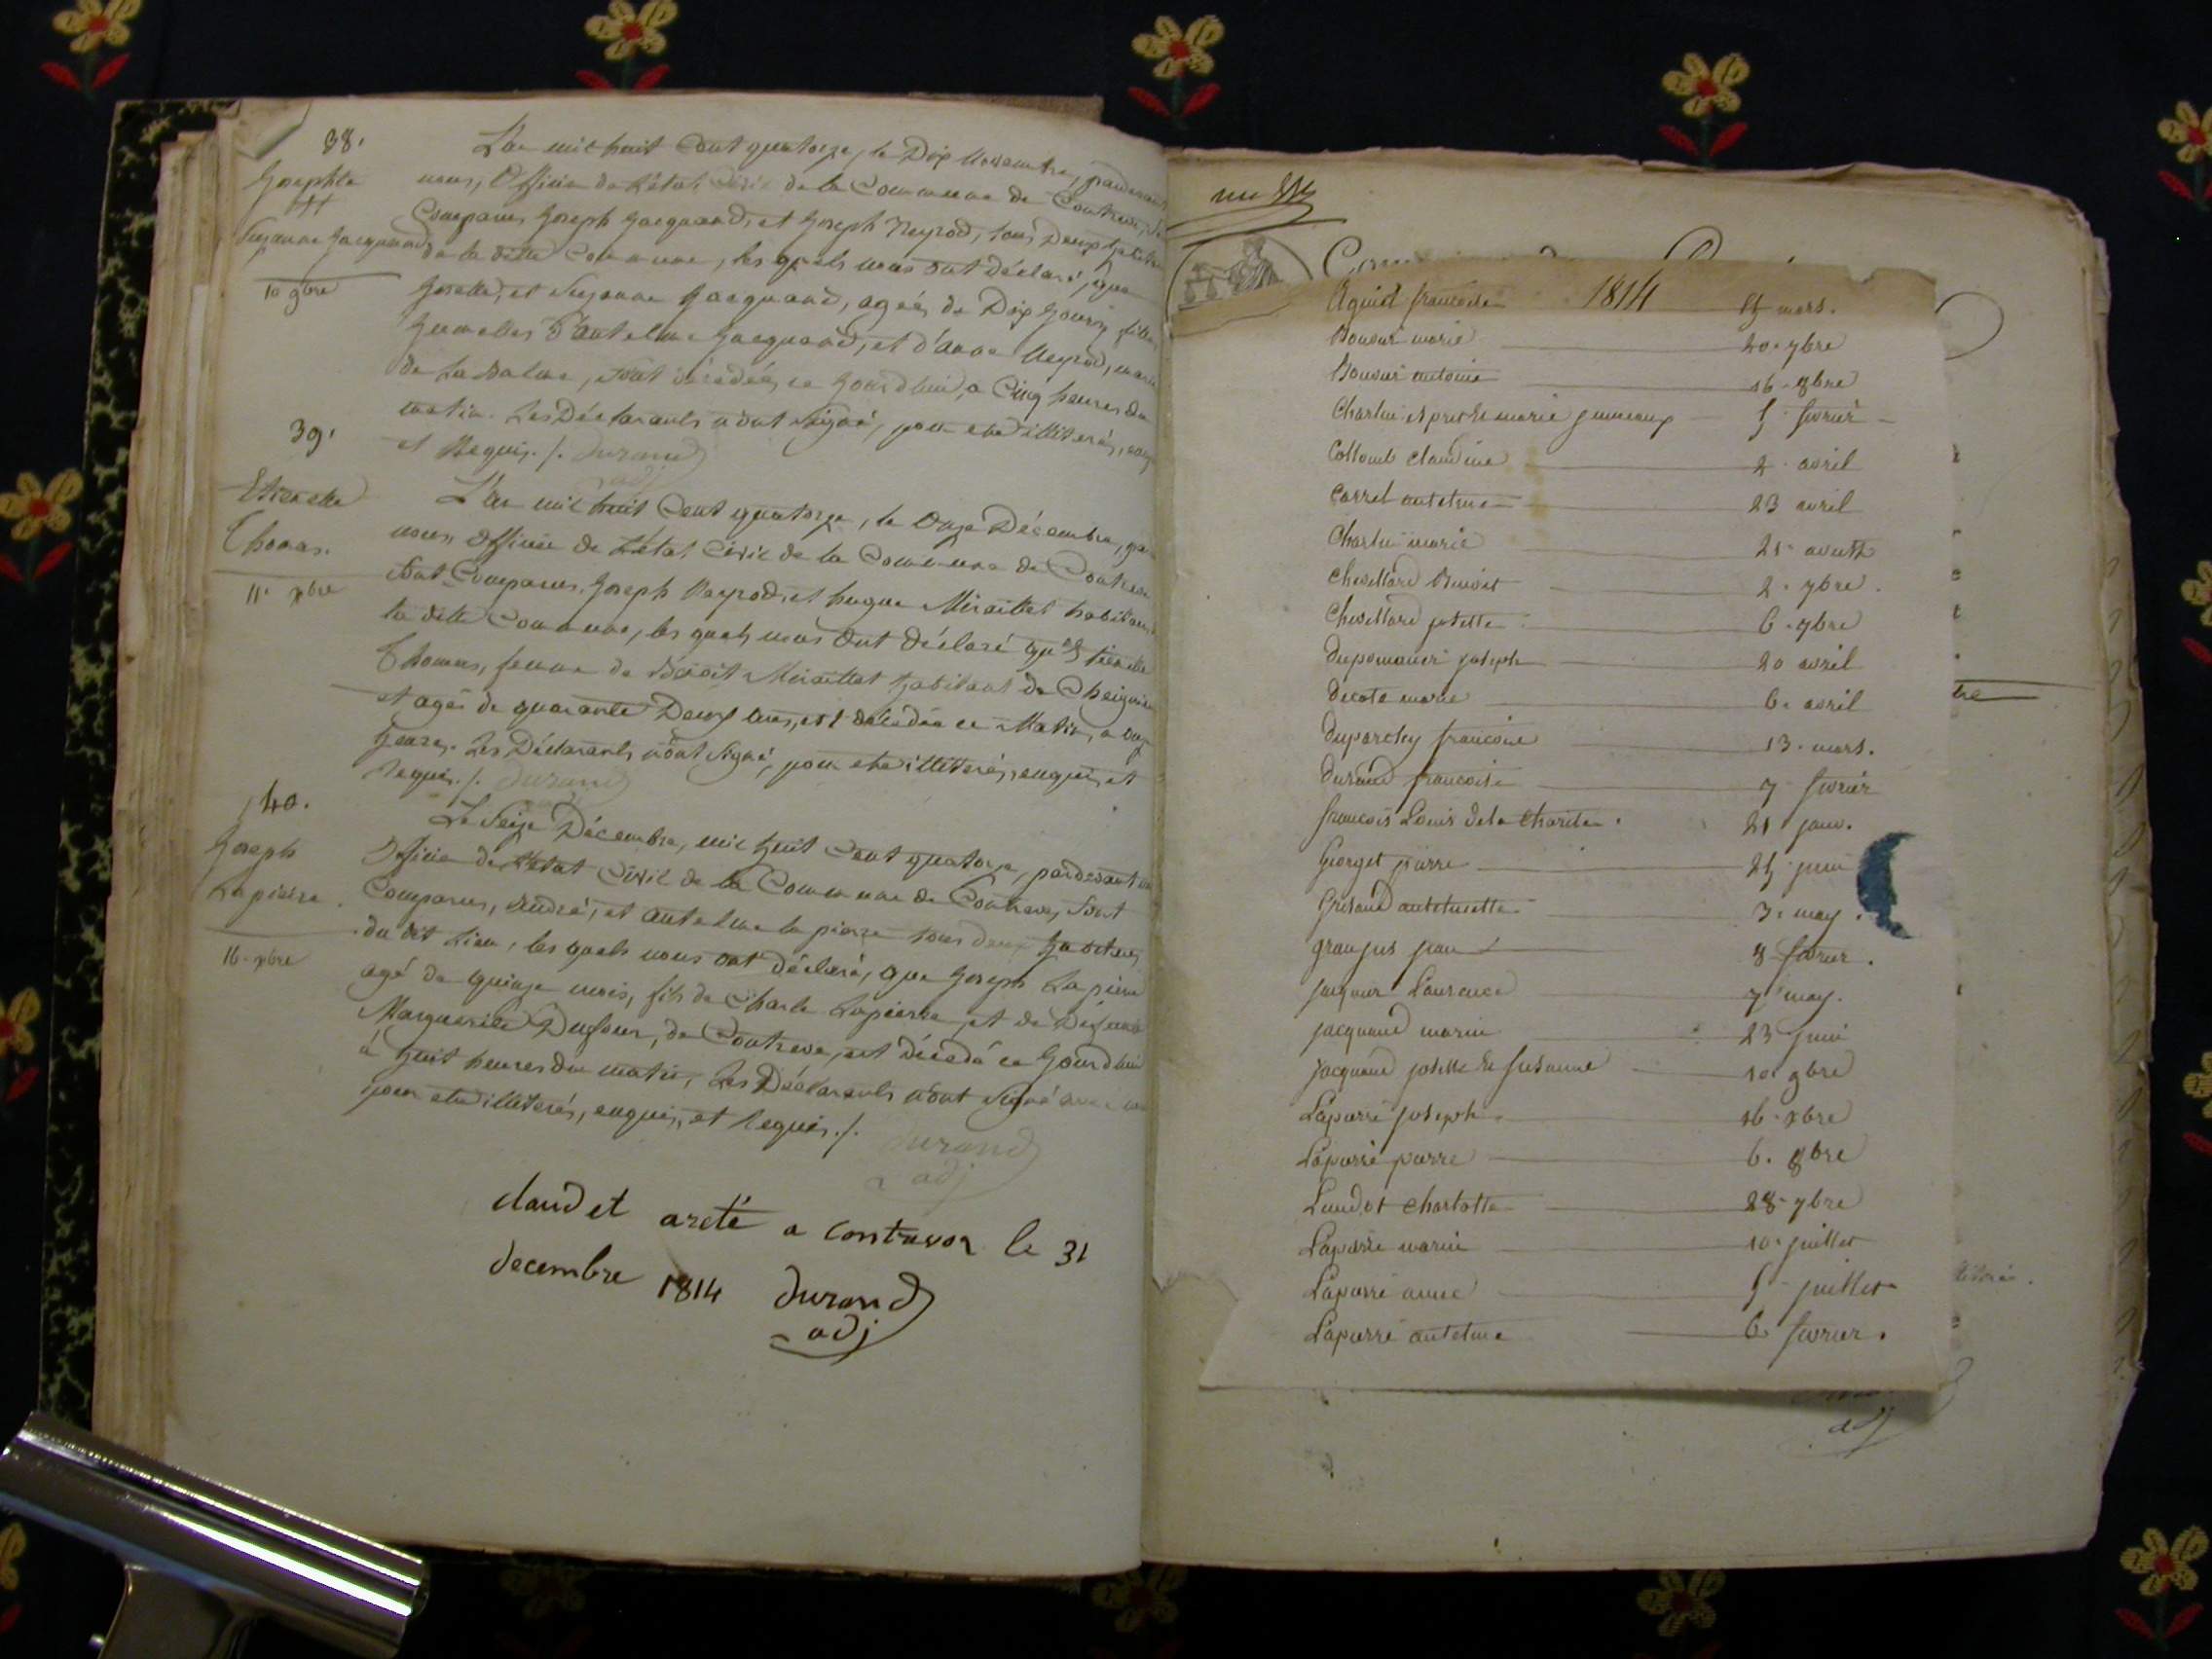 38.
Josephte
et
Suzanne Jacquand
10 9bre
L'an mil huit Cent quatorze, le Dix Novembre, pardevant
nous, Officier de L'état Civil de la Commune de Contrevoz, Sont
Comparus Joseph Jacquand, et Joseph Neyrod, tous Deux habitans
de la ditte Commune, les quels nous ont déclaré, que
Josette, et Suzanne Jacquand, agées de Dix Jours, filles
Jumelles D'antelme Jacquand, et d'anne Neyrod,
de La Balme, Sont décédées ce Jourdhui, a Cinq heures du
matin. Les Déclarants n'ont Signé, pour etre illiterés,
et Requis ./. Durand
adj
39.
Etienette
Thomas.
11. xbre
L'an mil huit Cent quatorze, le Onze Décembre,
nous, Officier de L'état Civil de la Commune de Contrevoz
Sont Comparus, Joseph Neyrod, et hugue Miraillet habitans
la ditte Commune, les quels nous Ont déclaré qu'Etienette
Thomas, femme de Benoit Miraillet habitant de Cheignieu
et agée de quarante Deux ans, est décédée ce Matin, a onze
heures. Les Déclarants n'ont Signé, pour etre illiterés, enquis, et
Requis ./. Durand
40.
Joseph
Lapierre.
16. xbre
Le Seize Décembre, mil huit Cent quatorze, pardevant nous
Officier de L'état Civil de la Commune de Contrevoz, Sont
Comparus, André, et antelme la pierre tous deux habitans
du dit Lieu, les quels nous ont déclaré, que Joseph Lapierre
agé de quinze mois, fils de Charle Lapierre, et de Defunte
Marguerite Dufour, de Contrevoz, est décédé ce Jourdhui
à huit heures du matin, Les Déclarants n'ont Signé avec nous
pour etre illiterés, enquis, et Requis ./.
Durand
adj
claud et areté a contrevoz le 31
decembre 1814 Durand
adj
1814
Aguiot francoise 15 mars.
Bouvier marie 20. 7bre
Bouvier antoine 16. 8bre
Charlin et proche marie jumeaux 5 fevrier
Collomb claudine 2. avril
Carrel antelme 23 avril
Charlin marie 21. aoust
Chevillard Benoit 2. 7bre.
Chevillard josette 6. 7bre
Dupomanier joseph 20 avril
Decote marie 6. avril
Duparchy francoise 13. mars.
Durand francoise 7 fevrier
francois Louis dela Charité. 21 janv.
Georget pierre 25 juin
Grisaud antelmette 3. may.
Granjus jean 8 fevrier.
Jacquier Laurence 7 may.
Jacquand marie 23 juin
Jacquand josette et susanne 10 9bre
Lapierre joseph. 16. xbre
Lapierre pierre 6. 8bre
Laudot charlotte 28. 7bre
Lapierre marie 10. juillet
Lapierre anne 5 juillet
Lapierre antelme 6. fevrier.